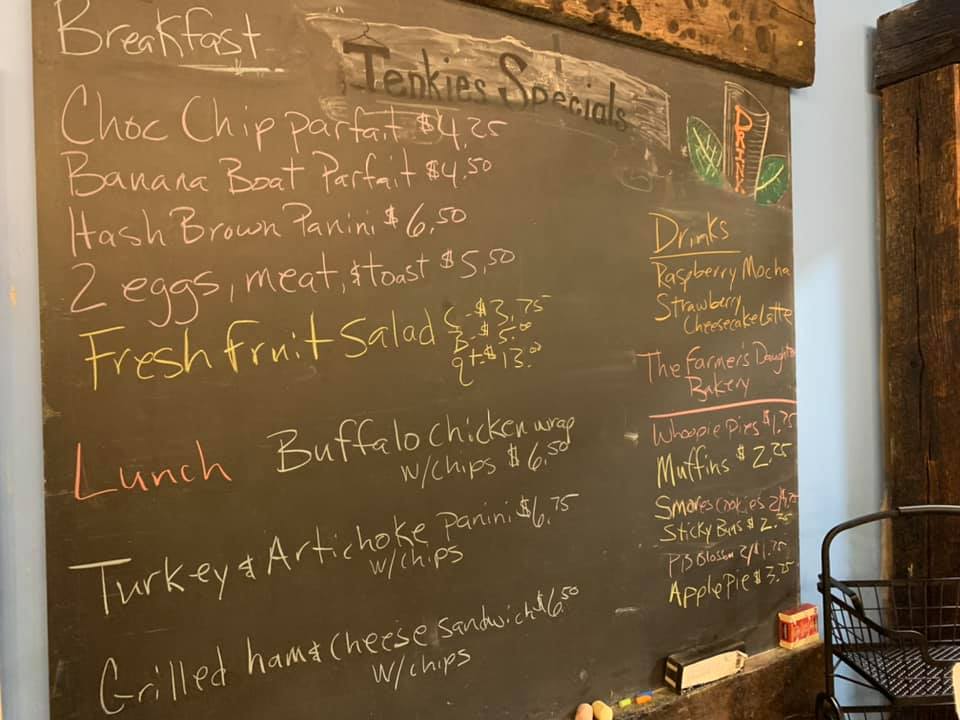 Breakfast
Jenkies Specials
Choc Chip parfait $4.25
Banana Boat Parfait $4.50
Hash Brown Panini $6.50
2 eggs, meat, & toast $5.50
Fresh fruit Salad C-$3.75
B-$5.00
qt-$13.00
Lunch
Buffalo chicken wrap
w/chips $6.50
Turkey & Artichoke panini $6.75
w/chips
Grilled ham & cheese sandwich $6.50
w/chips
DRINK
Drinks
Raspberry Mocha
Strawberry
Cheesecake Latte
The Farmer's Daughter
Bakery
Whoopie Pies $1.75
Muffins $2.25
Smores Cookies
Sticky Buns $2.75
PB Blossom 2/$1.75
Apple Pie $3.75